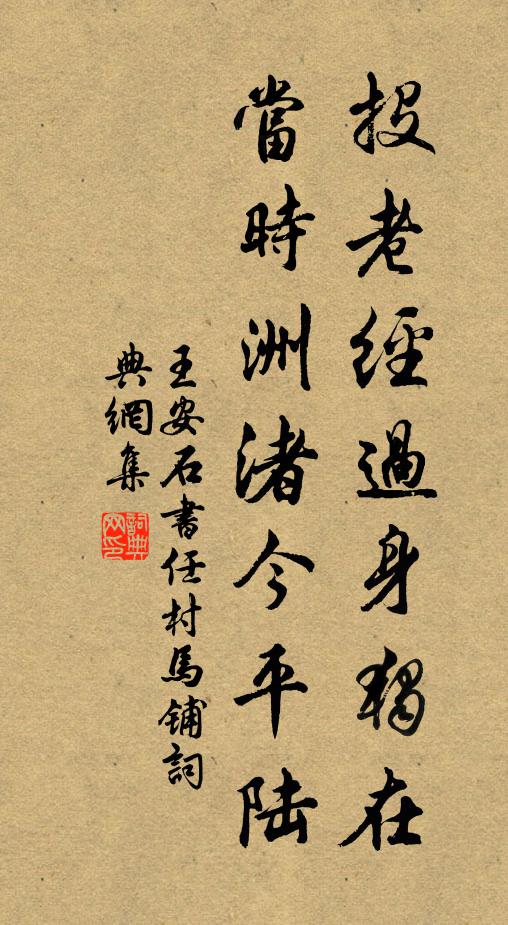 投老經過身獨在
當時洲渚今平陆
王安石書任村馬鋪詞
典網集
詞典网印